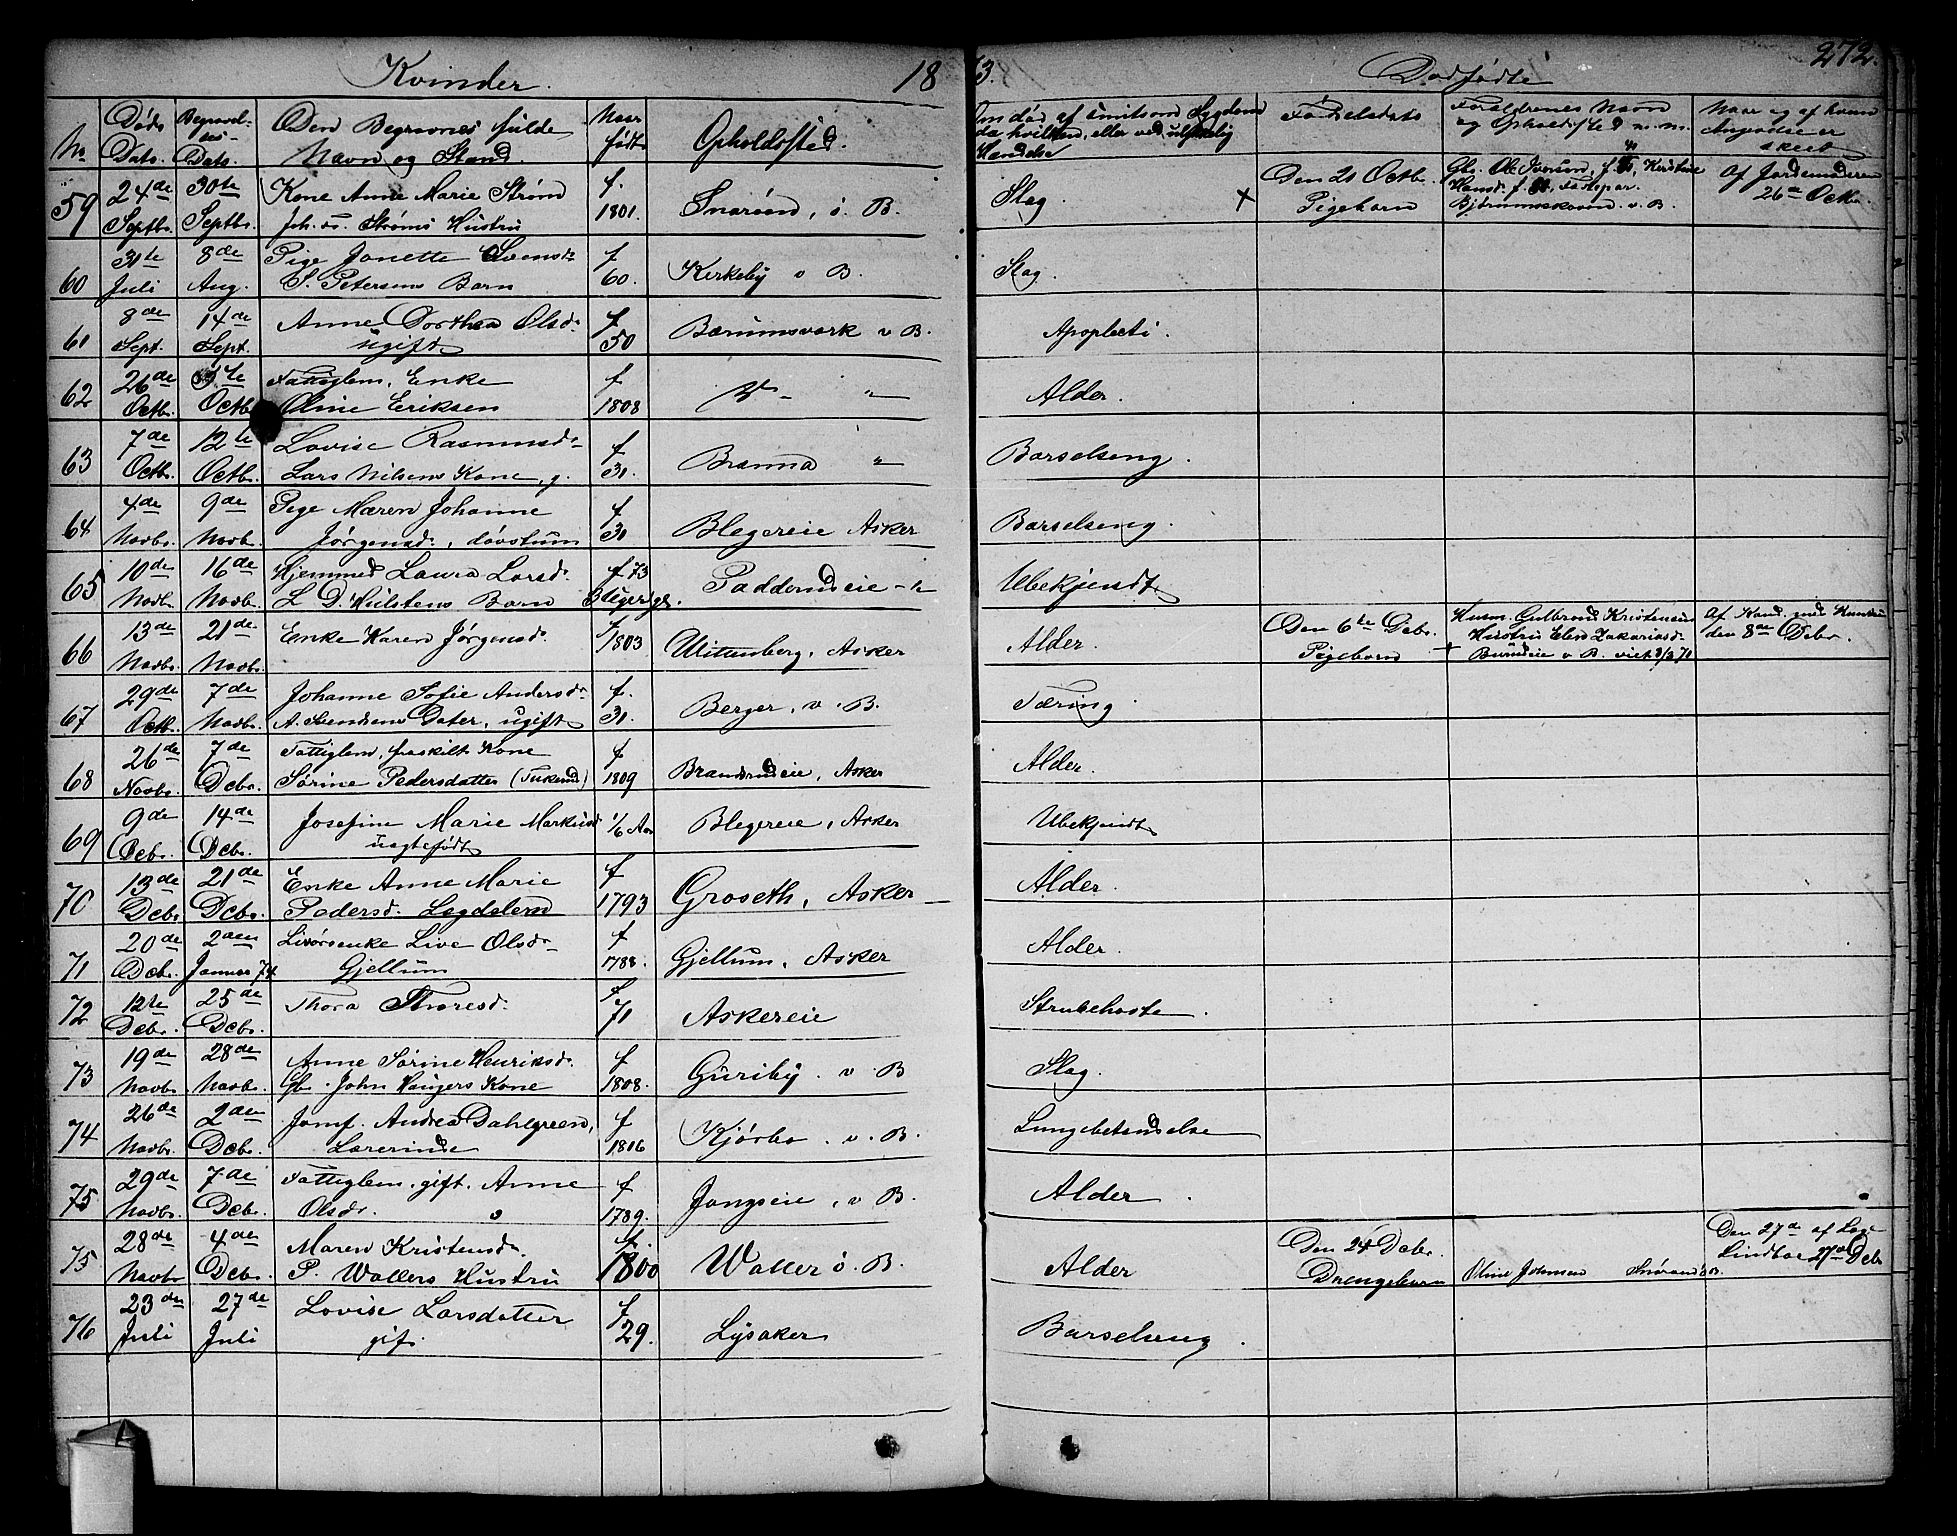 Kvinder. 18
No
Døds Dato.
Begravelses Dato.
Den Begravnes fulde Navn og Stand.
Naar født
Opholdssted.
59 24de Septbr. 30te Septbr. Kone Anne Marie Strøm f. 1801. Snarøen, ö. B.
Joh. Strøms Hustru
60 31te Juli 8de Aug. Pige Janette Svensdr. f 60. Kirkeby v B.
S. Petersens Barn
61 8de Sept. 14de Sept. Anne Dorthea Olsdr. f 50 Bærumsværk v B.
ugift
62 26de Octbr. Octbr. Fattiglem, Enke f 1808 B - "
Oline Eriksen
63 7de Octbr. 12te Octbr. Lovise Rasmusdr. f 31. Brenna "
Lars Nilsens Kone, g.
64 4de Novbr. 9de Novbr. Pige Maren Johanne f 31 Blegereie Asker
Jørgensdr., døvstum
65 10de Novbr. 16de Novbr. Hjemmed Laura Larsd. f 73 Paddemdeie
L D. Hulstens Barn
66 13de Novbr. 21de Novbr. Enke Karen Jørgensd. f 1803 Wittenberg, Asker
67 29de Octb. 7de Novbr. Johanne Sofie Andersdr. f. 31. Berger, v. B.
A. Svendsens Dater, ugift
68 26de Novbr. 7de Debr. Fattiglem, fraskilt Kone f 1809 Brændendeie, Asker
Sørine Pedersdatter
69 9de Debr. 14de Debr. Josefine Marie Markusd 1/6 Aar Blegereie, Asker
uægtefødt
70 13de Debr. 21de Debr. Enke Anne Marie f 1793 Groseth, Asker
Pedersd.
71 20de Debr. 2den Januar 74 Enke Live Olsdr. f 1788. Gjellum, Asker
Gjellum
72 12te Debr. 25de Debr. Thora Thoresd. f 71 Askereie
73 19de Novbr. 28de Novbr. Anne Sørine Henriksdr. f 1808. Guriby. v B
Gbr. John Haugers Kone
74 26de Novbr. 2den Debr. Jomf. Andrea Dahlgreen, f 1816 Kjørbo. v. B.
Lærerinde
75 29de Novbr. 7de Debr. Fattiglem, gift, Anne f 1789. Jongseie, v B.
Olsdr.
75 28de Novbr 4de Debr. Maren Kristensdr. f. 1800 Waller ö. B.
P. Wallers Hustru
76 23de Juli 27de Juli Lovise Larsdatter f 29. Lysaker
gift.
73. Dødfødte 272.
Om død af smitsom Sygdom da hvilken, eller ved ulykkelig Hændelse
Fødselsdato
Forældrenes Navn og Opholdssted m. m.
Naar og af hvem Anmeldelse er skeet
Slag + Den 21 Octbr. Pigebarn
Gbr. Ole Iversen, f. 40, Kirstine
Hansd. f.
Bjørumsskoven v. B.
Af Jordemoderen
26de Octbr
Slag.
Apoplecti.
Alder.
Barselseng.
Barselseng.
Ubekjendt
Alder. Den 6te Debr. Pigebarn +
Husm. Gulbrand Kristensen
Hustru Elen Zakariasd.
v B. viet 3/3 71
Af
den 8de Debr.
Tæring.
Alder.
Ubekjendt
Alder.
Alder.
Strubehoste.
Slag.
Lungebetændelse
Alder.
Alder Den 24 Debr. Drengebarn Oline Johnsen Snarøen ö B.
Den 27de af
Lindboe 27de Debr
Barselseng.